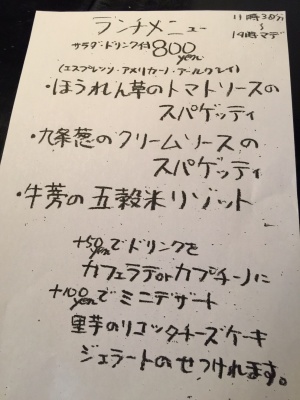 ランチメニュー
11時30分
〜
14時マデ
サラダ・ドリンク付800yen
(エスプレッソ・アメリカーノ・アールグレイ)
・ほうれん草のトマトソースの
スパゲッティ
・九条葱のクリームソースの
スパゲッティ
・牛蒡の五穀米リゾット
+50yenでドリンクを
カフェラテorカプチーノに
+100yenでミニデザート
里芋のリコッタチーズケーキ
ジェラートのせつけれます。